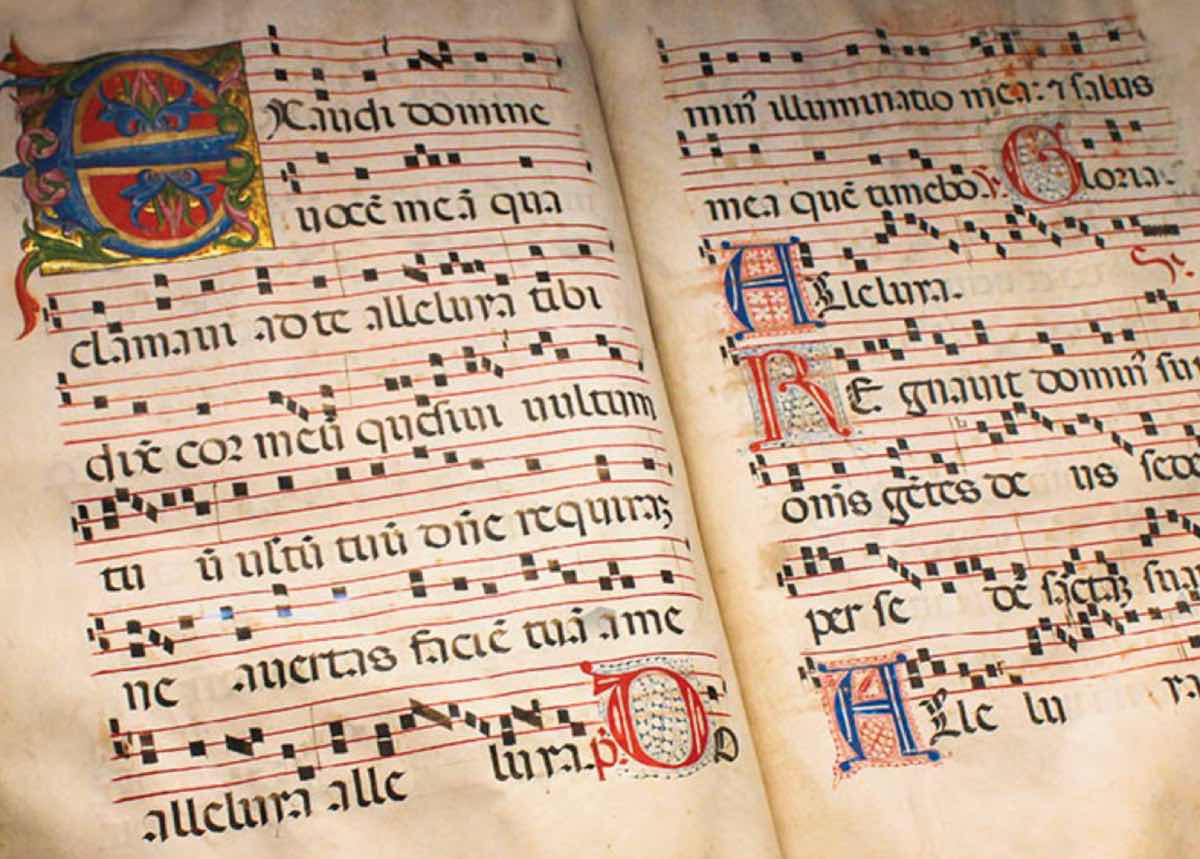 EXaudi domine
vocē meā qua
clamavi ad te alleluya tibi
dix̄ cor meū quesivi vultum
tu ū ultū tuū dn̄e requirā
ne avertas faciē tuā a me
alleluya alle luya. p. DD
min̄ illuminatio mea: ⁊ salus
mea quē timebo. Gloria.
ALleluya.
REgnavit domin̄ su
om̄s gētes de us sed
per se dē sāctā sua
ALle lu ya